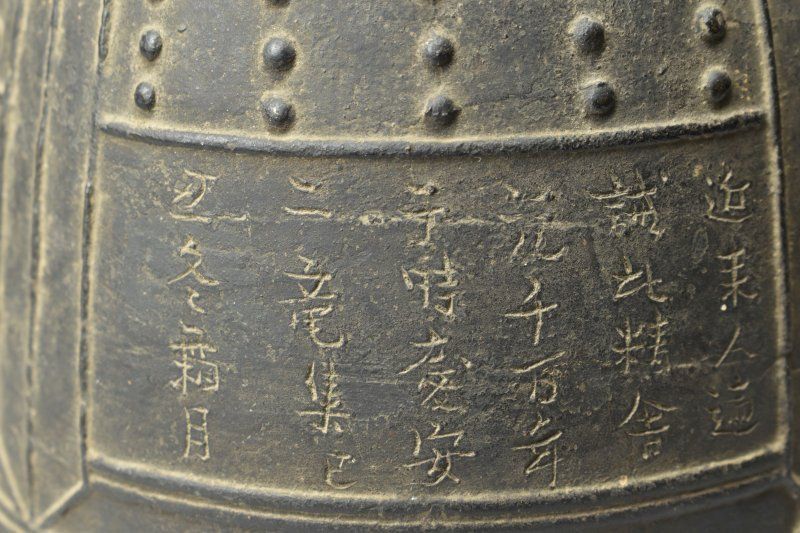 近来人道
誠此精舎
千百年
于時慶安
二竜集己
丑冬霜月